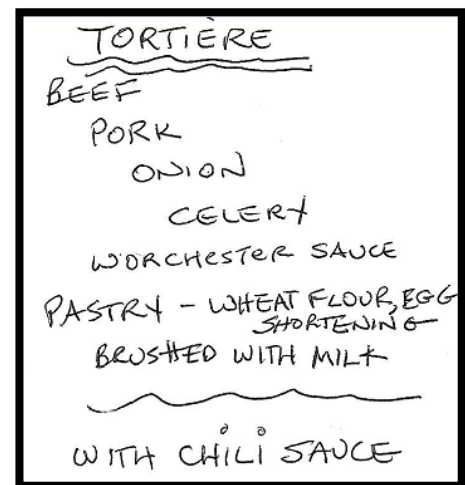 TORTIÈRE
BEEF
PORK
ONION
CELERY
WORCHESTER SAUCE
PASTRY - WHEAT FLOUR, EGG
SHORTENING
BRUSHED WITH MILK
WITH CHILI SAUCE